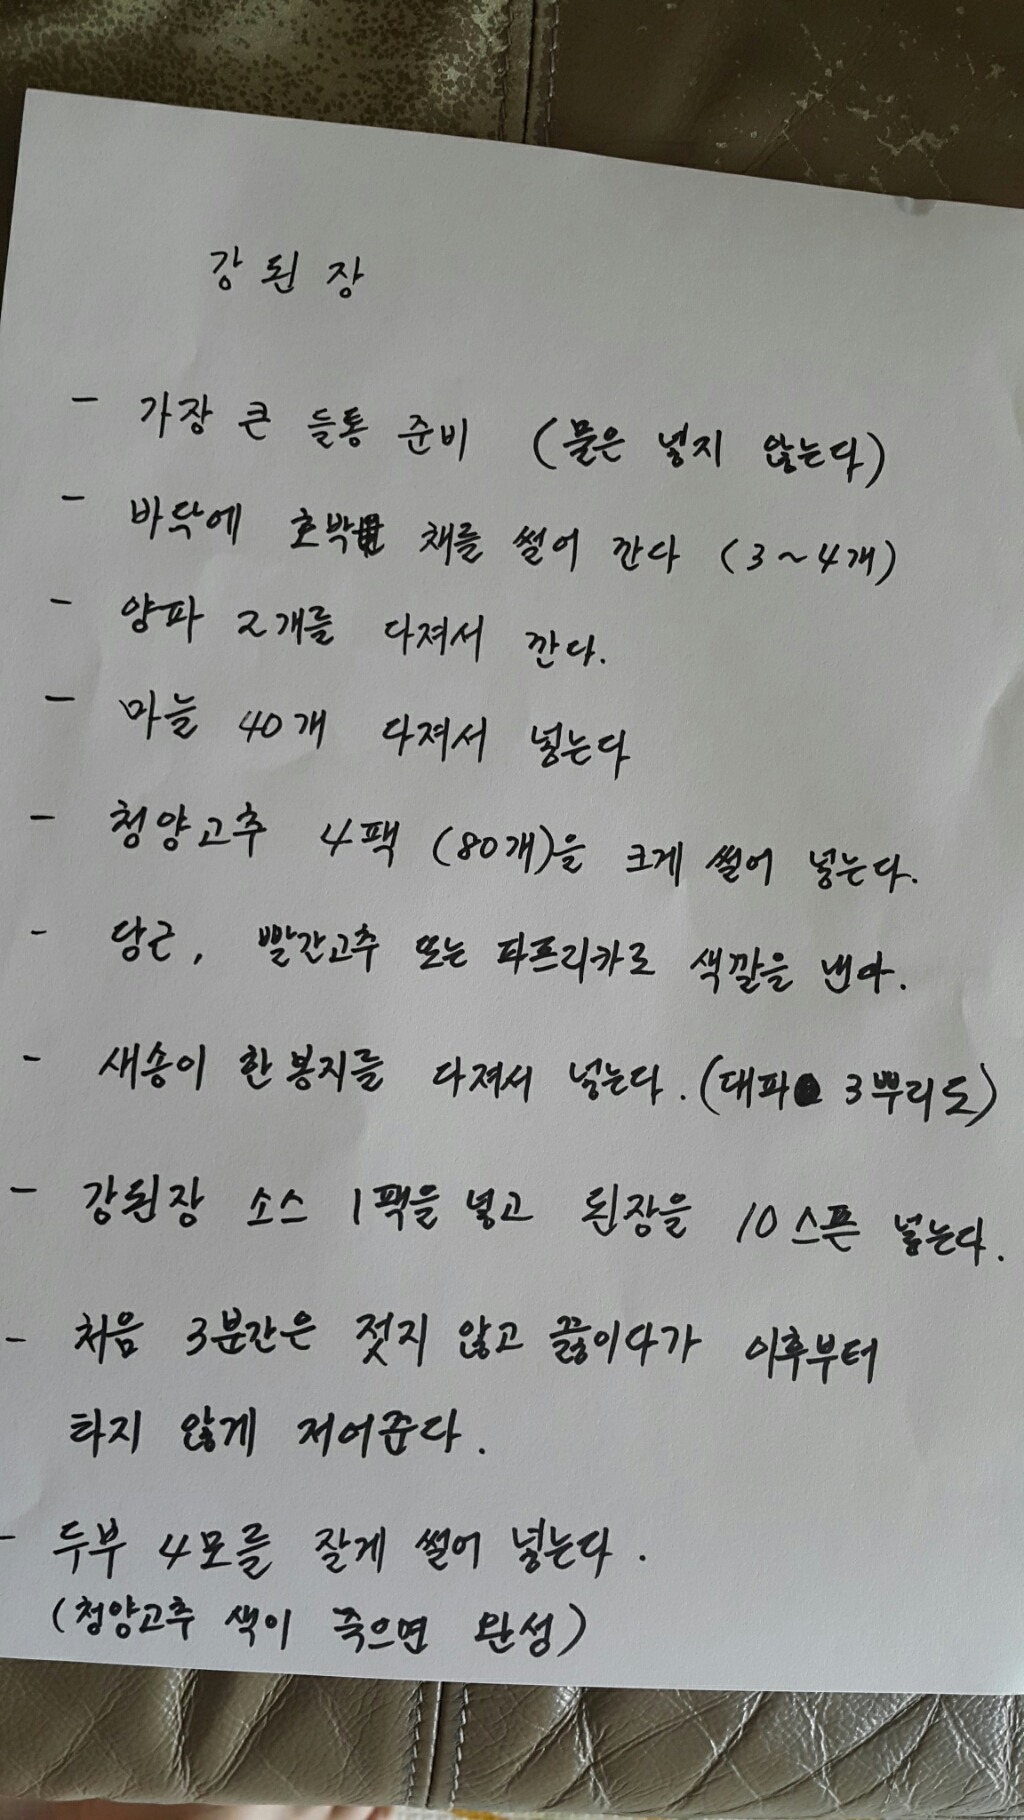 강된장
- 가장 큰 들통 준비 (물은 넣지 않는다)
- 바닥에 호박 채를 썰어 깐다 (3~4개)
- 양파 2개를 다져서 깐다.
- 마늘 40개 다져서 넣는다
- 청양고추 4팩 (80개)을 크게 썰어 넣는다.
- 당근, 빨간고추 또는 파프리카로 색깔을 낸다.
- 새송이 한 봉지를 다져서 넣는다. (대파 3뿌리도)
- 강된장 소스 1팩을 넣고 된장을 10스픈 넣는다.
- 처음 3분간은 젓지 않고 끓이다가 이후부터
타지 않게 저어준다.
- 두부 4모를 잘게 썰어 넣는다.
(청양고추 색이 죽으면 완성)